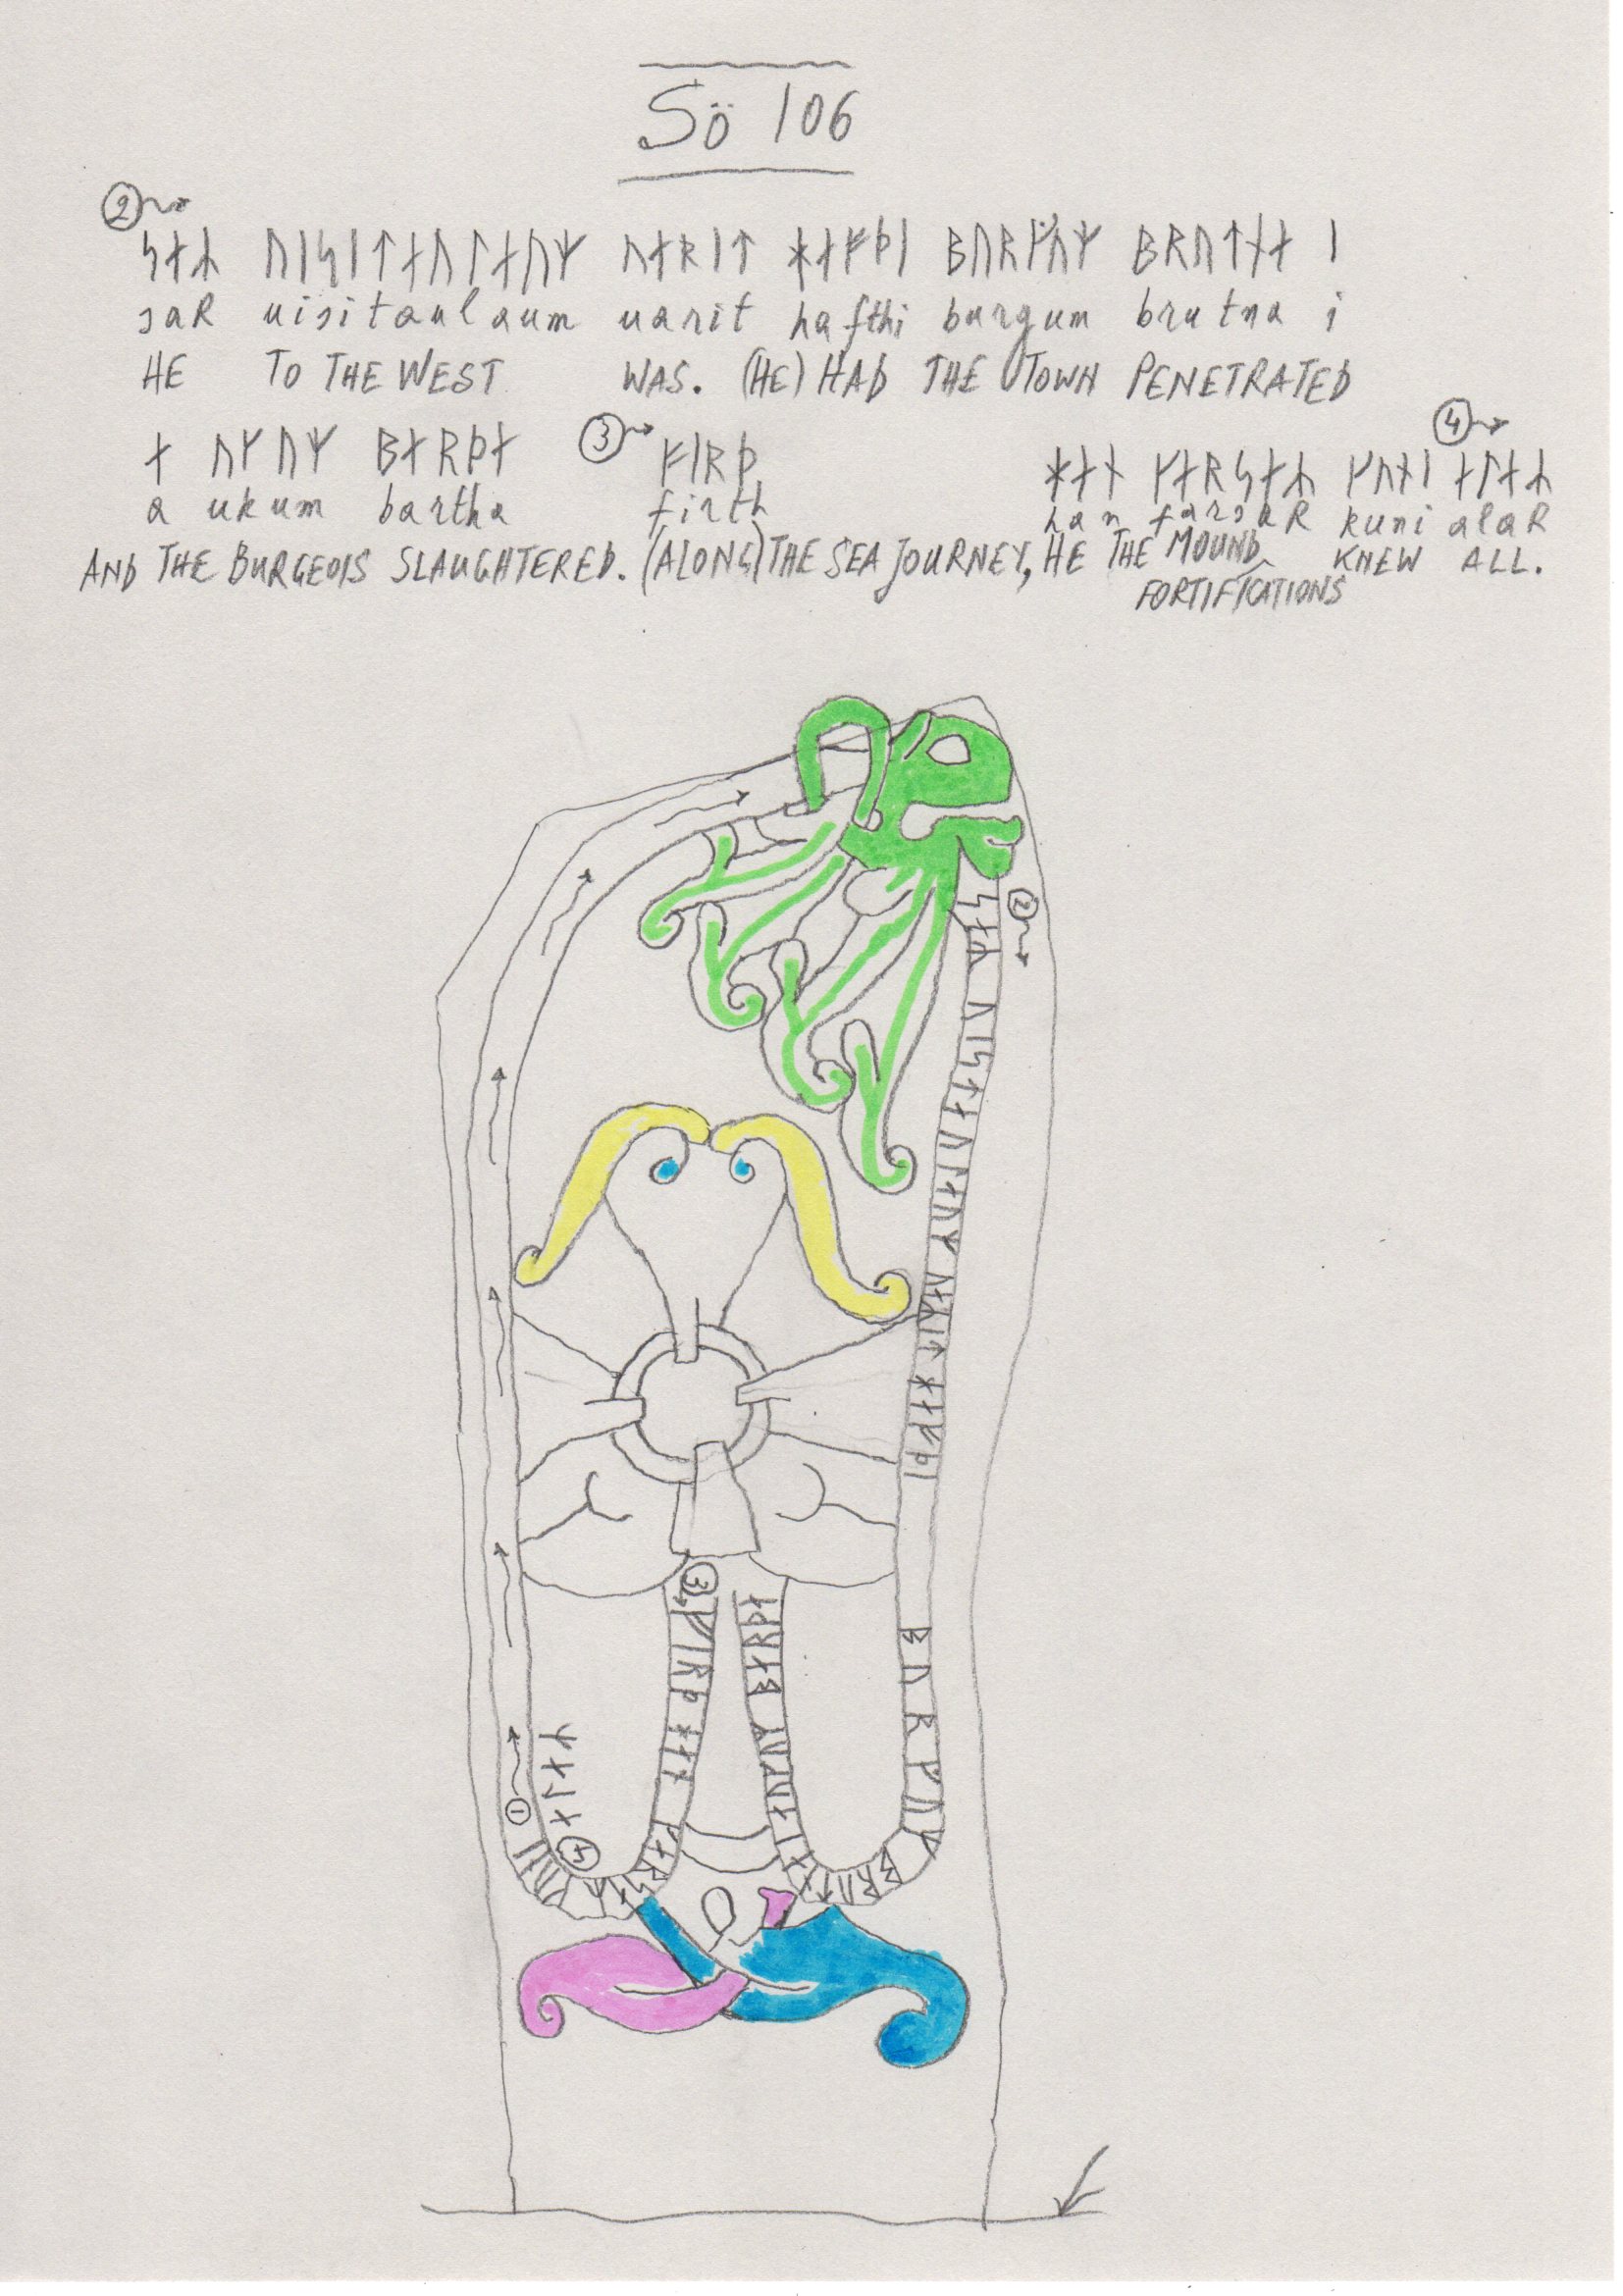 Sö 106
②
ᛋᛅᛦ ᚢᛁᛋᛁᛏᛅᚢᛚᛅᚢᛘ ᚢᛅᚱᛁᛏ ᚼᛅᚠᚦᛁ ᛒᚢᚱᚵᚢᛘ ᛒᚱᚢᛏᚾᛅ ᛁ
saR uisitaulaum uarit hafthi burgum brutna i
HE TO THE WEST WAS. (HE) HAD THE TOWN PENETRATED
③ ④
ᛅ ᚢᚴᚢᛘ ᛒᛅᚱᚦᛅ ᚠᛁᚱᚦ ᚼᛅᚾ ᚴᛅᚱᛋᛅᛦ ᚴᚢᚾᛁ ᛅᛚᛅᛦ
a ukum bartha firth han farsaR kuni alaR
AND THE BURGEOIS SLAUGHTERED. (ALONG) THE SEA JOURNEY, HE THE MOUND KNEW ALL.
FORTIFICATIONS
② ᛋᛅᛦ ᚢᛁᛋᛏᛅᚢᛚᛅᚢᛘ ᚢᛅᚱᛁᛏ ᚼᛅᚠᚦᛁ
ᛒᚢᚱᚴᚢᛘ ᛒᚱᚢᛏ
ᚢᚴᚢᛘ ᛒᛅᚱᚦᛅ
③ ᚠᛁᚱᚦ ᚼᛅᚾ ᚴᛅᚱᛋ
④ ᛅᛚᛅᛦ
①